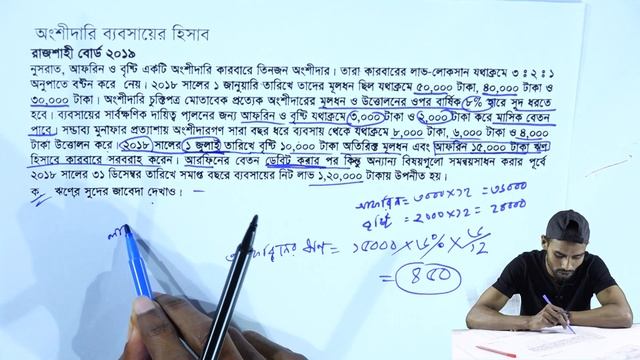 অংশীদারি ব্যবসায়ের হিসাব
রাজশাহী বোর্ড ২০১৯
নুসরাত, আফরিন ও বৃষ্টি একটি অংশীদারি কারবারে তিনজন অংশীদার। তারা কারবারের লাভ-লোকসান যথাক্রমে ৩ ঃ ২ ঃ ১
অনুপাতে বণ্টন করে নেয়। ২০১৮ সালের ১ জানুয়ারি তারিখে তাদের মূলধন ছিল যথাক্রমে ৫০,০০০ টাকা, ৪০,০০০ টাকা ও
৩০,০০০ টাকা। অংশীদারি চুক্তিপত্র মোতাবেক প্রত্যেক অংশীদারের মূলধন ও উত্তোলনের ওপর বার্ষিক ৮% হারে সুদ ধরতে
হবে। ব্যবসায়ের সার্বক্ষণিক দায়িত্ব পালনের জন্য আফরিন ও বৃষ্টি যথাক্রমে ৩,০০০ টাকা ও ২,০০০ টাকা করে মাসিক বেতন
পাবে। সম্ভাব্য মুনাফার প্রত্যাশায় অংশীদারগণ সারা বছর ধরে ব্যবসায় থেকে যথাক্রমে ৮,০০০ টাকা, ৬,০০০ টাকা ও ৪,০০০
টাকা উত্তোলন করে। ২০১৮ সালের ১ জুলাই তারিখে বৃষ্টি ১০,০০০ টাকা অতিরিক্ত মূলধন এবং আফরিন ১৫,০০০ টাকা ঋণ
হিসাবে কারবারে সরবরাহ করেন। আরফিনের বেতন ডেবিট করার পর কিন্তু অন্যান্য বিষয়গুলো সমন্বয়সাধন করার পূর্বে
২০১৮ সালের ৩১ ডিসেম্বর তারিখে সমাপ্ত বছরে ব্যবসায়ের নিট লাভ ১,২০,০০০ টাকায় উপনীত হয়।
ক. ঋণের সুদের জাবেদা দেখাও।
আফরিন = ৩০০০×১২ = ৩৬০০০
বৃষ্টি = ২০০০×১২ = ২৪০০০
ঋণ = ১৫০০০×৬%×৬/১২
= ৪৫০